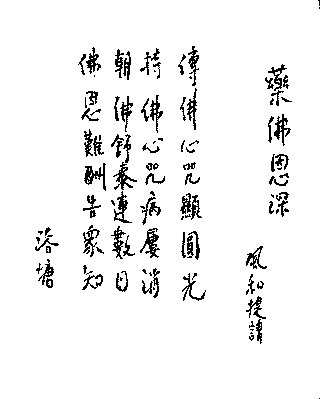 藥佛恩深
風和提請
傳佛心咒顯圓光
持佛心咒病屢消
朝佛舒泰連數日
佛恩難酬告眾知
洛塘